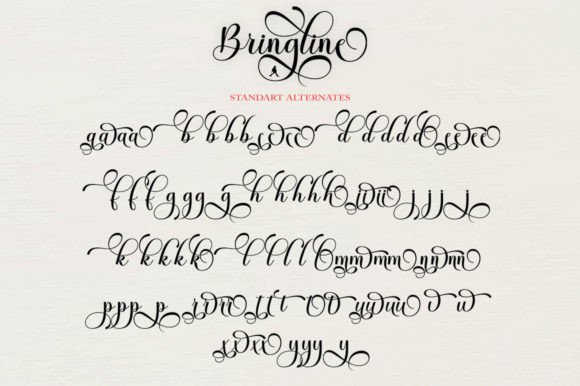 Bringline
STANDART ALTERNATES
aaaa b b b b cccc d d d d d eeee
f f f g g g g h h h h h iiii j j j j
k k k k k l l l l l mmmm nnnn
p p p p rrrr t t t uuuu v w
xxxx y y y y